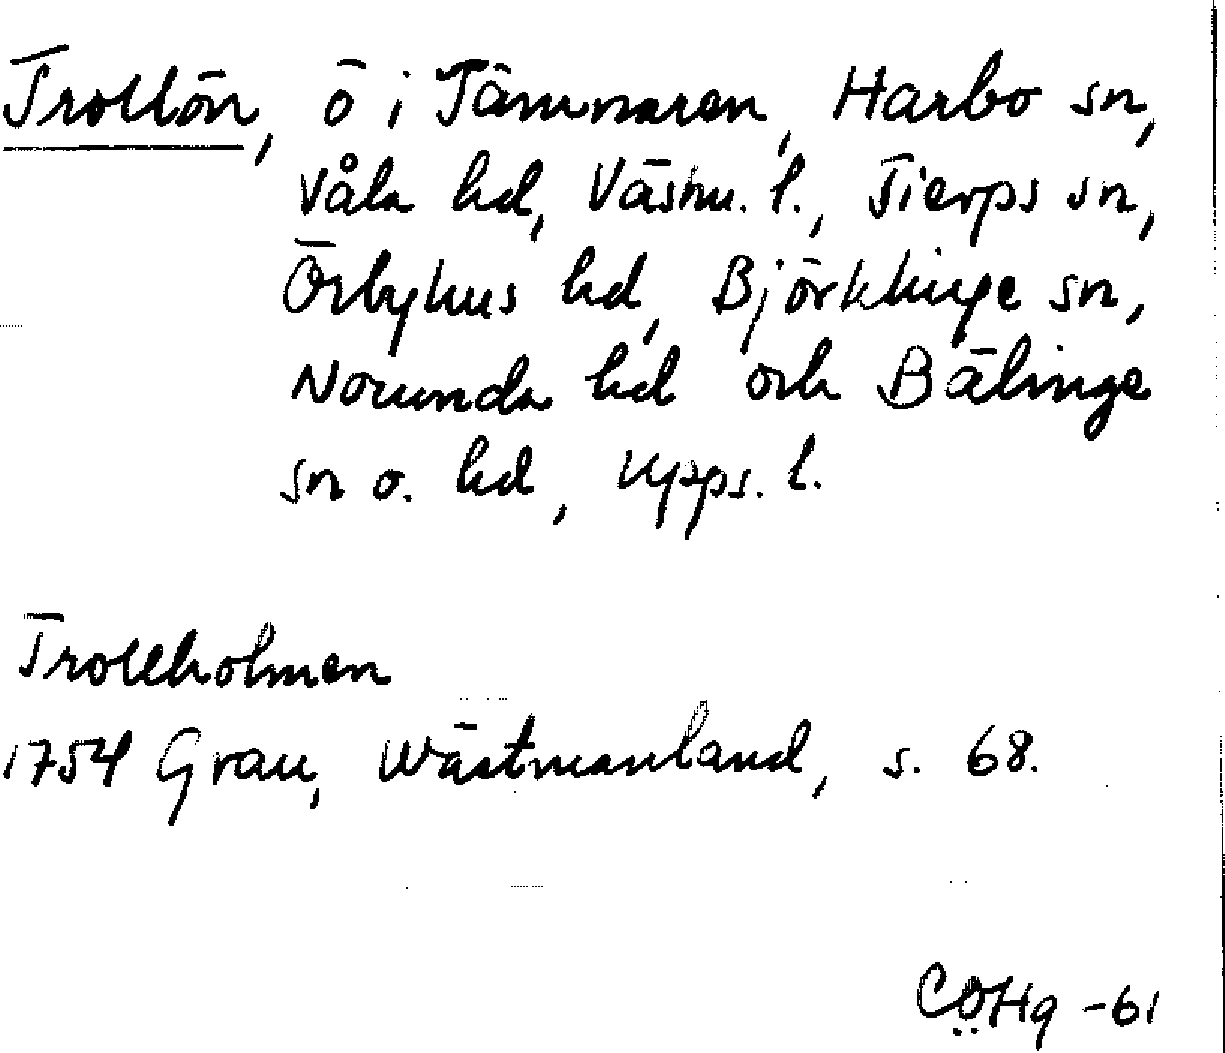 Trollön, ö i Tämnaren, Harbo sn,
Våla hd, Västm. l., Tierps sn,
Örbyhus hd, Björklinge sn,
Norunda hd och Bälinge
sn o. hd, Upps. l.
Trollholmen
1754 Grau, Wästmanland, s. 68.
CÖHg -61